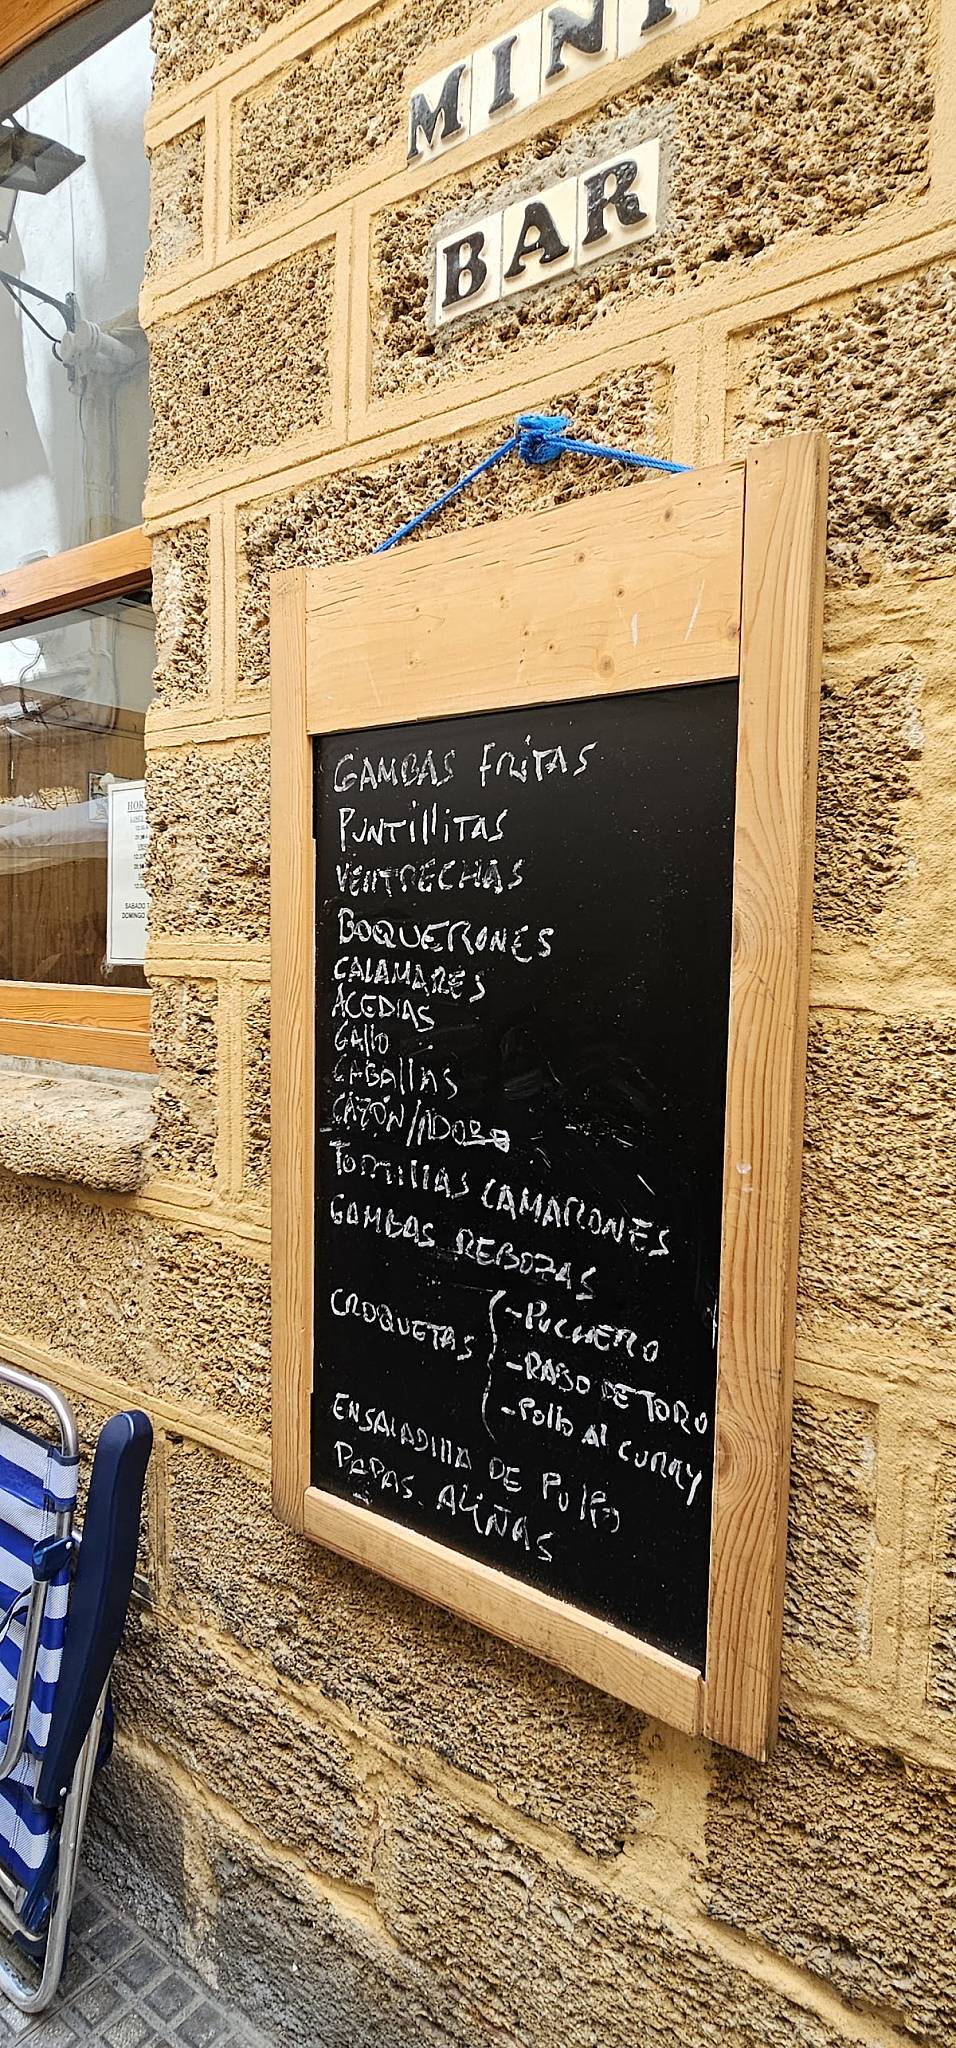 MINI
BAR
GAMBAS FRITAS
PUNTILLITAS
VENTRECHAS
BOQUERONES
CALAMARES
ACEDIAS
GALLO
CABALLAS
CAZÓN/ADOBO
TORTILLAS CAMARONES
GAMBAS REBOZAS
CROQUETAS
-PUCHERO
-RABO DE TORO
-POLLO AL CURRY
ENSALADILLA DE PULPO
PAPAS ALIÑAS
SABADO
DOMINGO